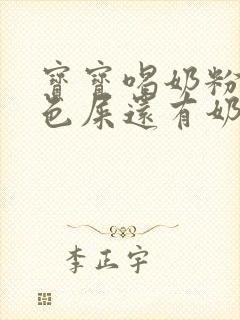 寶寶喝奶粉
色屎還有奶
李正宇